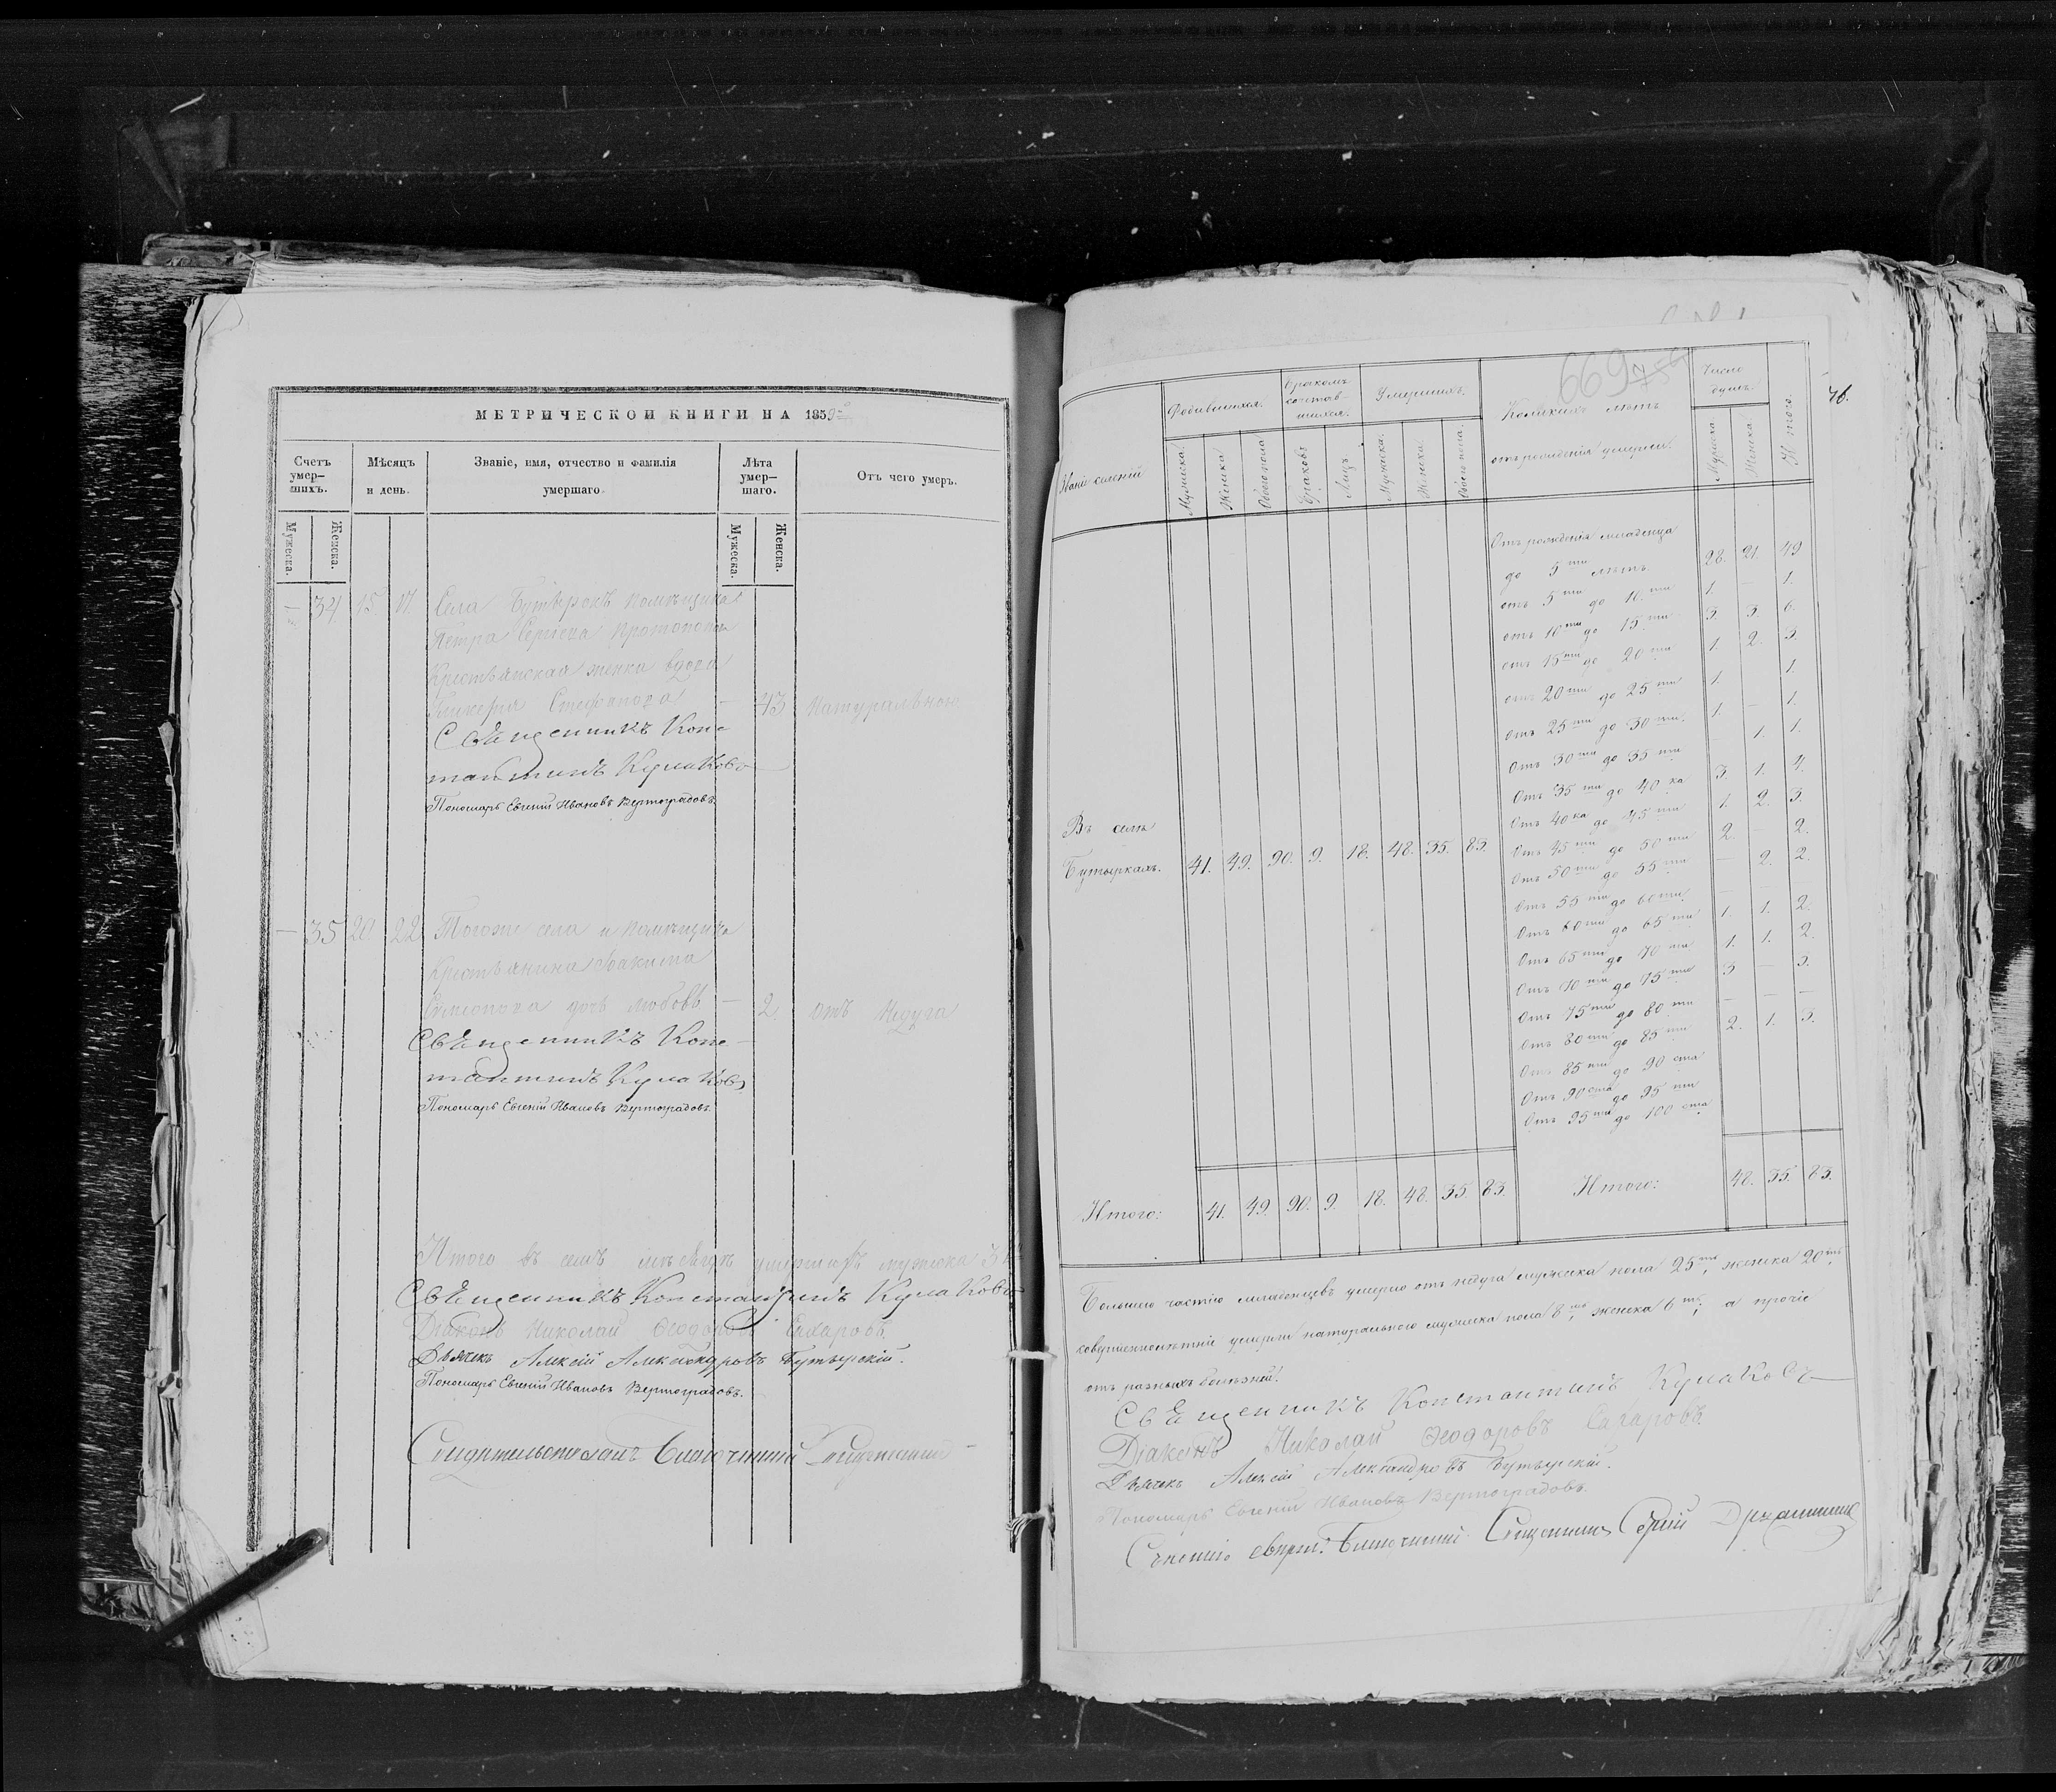 МЕТРИЧЕСКОЙ КНИГИ НА 1859
Счетъ умер-шихъ.
Мѣсяцъ и день.
Званіе, имя, отчество и фамилія умершаго.
Лѣта умер-шаго.
Отъ чего умеръ.
Мужеска.
Женска.
Мужеска.
Женска.
— 34 15 17 Села Бутырокъ помѣщика
Петра Сергѣева Протопопова
Крестьянская женка вдова
Стефанова — 43 натуральною
Священникъ Конс-
тантинъ Кулаковъ
Пономарь Евгеній Ивановъ Вертоградовъ.
— 35 20 22 Тогоже села и помѣщика
Крестьянина Іоакима
Симеонова дочь Любовь — 2 отъ недуга
Священникъ Конс-
тантинъ Кулаковъ
Пономарь Евгеній Ивановъ Вертоградовъ.
Итого въ семъ мѣсяцѣ умершихъ мужска 3
Священникъ Константинъ Кулаковъ
Діаконъ Николай Ѳеодоровъ Сахаровъ
Дьячекъ Алексій Александровъ Бутырскій.
Пономарь Евгеній Ивановъ Вертоградовъ.
Свидѣтельствовалъ Благочинный Священникъ
669
76.
Названіе селеній
Родившихся.
Бракомъ сочетав-шихся.
Умершихъ.
Коликихъ лѣтъ отъ рожденія умерли.
Число душъ.
Итого.
Мужеска
Женска
Обоего пола
Браковъ
Лицъ
Мужеска.
Женска
Обоего пола
Мужеска
Женска.
Отъ рожденія младенца
до 5ти лѣтъ. 28. 21. 49
отъ 5ти до 10ти 1. — 1.
отъ 10ти до 15ти 3. 3. 6.
отъ 15ти до 20ти 1. 2. 3.
отъ 20ти до 25ти 1. 1.
отъ 25ти до 30ти 1. — 1.
Отъ 30ти до 35ти — 1. 1.
Отъ 35ти до 40ка 3. 1. 4.
Отъ 40ка до 45ти 1. 2. 3.
Отъ 45ти до 50ти 2. — 2.
Отъ 50ти до 55ти — 2. 2.
Отъ 55ти до 60ти — —
Отъ 60ти до 65ти 1. 1. 2.
Отъ 65ти до 70ти 1. 1. 2.
Отъ 70ти до 75ти 3 — 3.
Отъ 75ти до 80ти — — —
Отъ 80ти до 85ти 2. 1. 3.
Отъ 85ти до 90ста
Отъ 90ста до 95ти
Отъ 95ти до 100ста
Въ селѣ
Бутыркахъ. 41. 49. 90. 9. 18. 48. 35. 83.
Итого: 41. 49. 90. 9. 18. 48. 35. 83. Итого: 48. 35. 83.
Большею частію младенцевъ умерло отъ недуга мужеска пола 25ть, женска 20ть,
совершеннолѣтніе умерли натурального мужеска пола 8мь, женска 6ть; а прочіе
отъ разныхъ болѣзней.
Священникъ Константинъ Кулаковъ
Діаконъ Николай Ѳеодоровъ Сахаровъ
Дьячекъ Алексій Александровъ Бутырскій.
Пономарь Евгеній Ивановъ Вертоградовъ.
Благочинный Священникъ Сергій